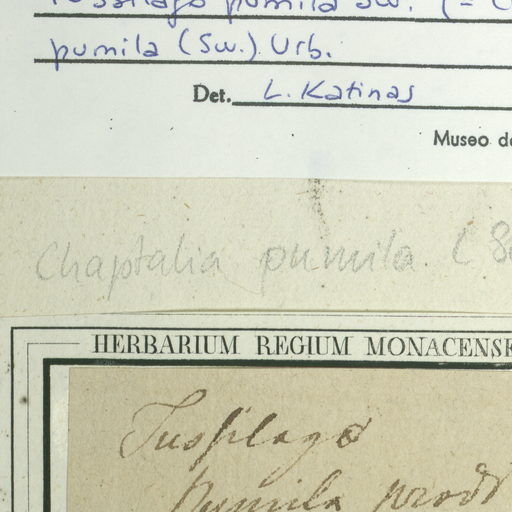 Tussilago pumila Sw. (=
pumila (Sw.) Urb.
Det. L. Katinas
Museo de
Chaptalia pumila (S
HERBARIUM REGIUM MONACENSE
Tussilago
Pumila prodr